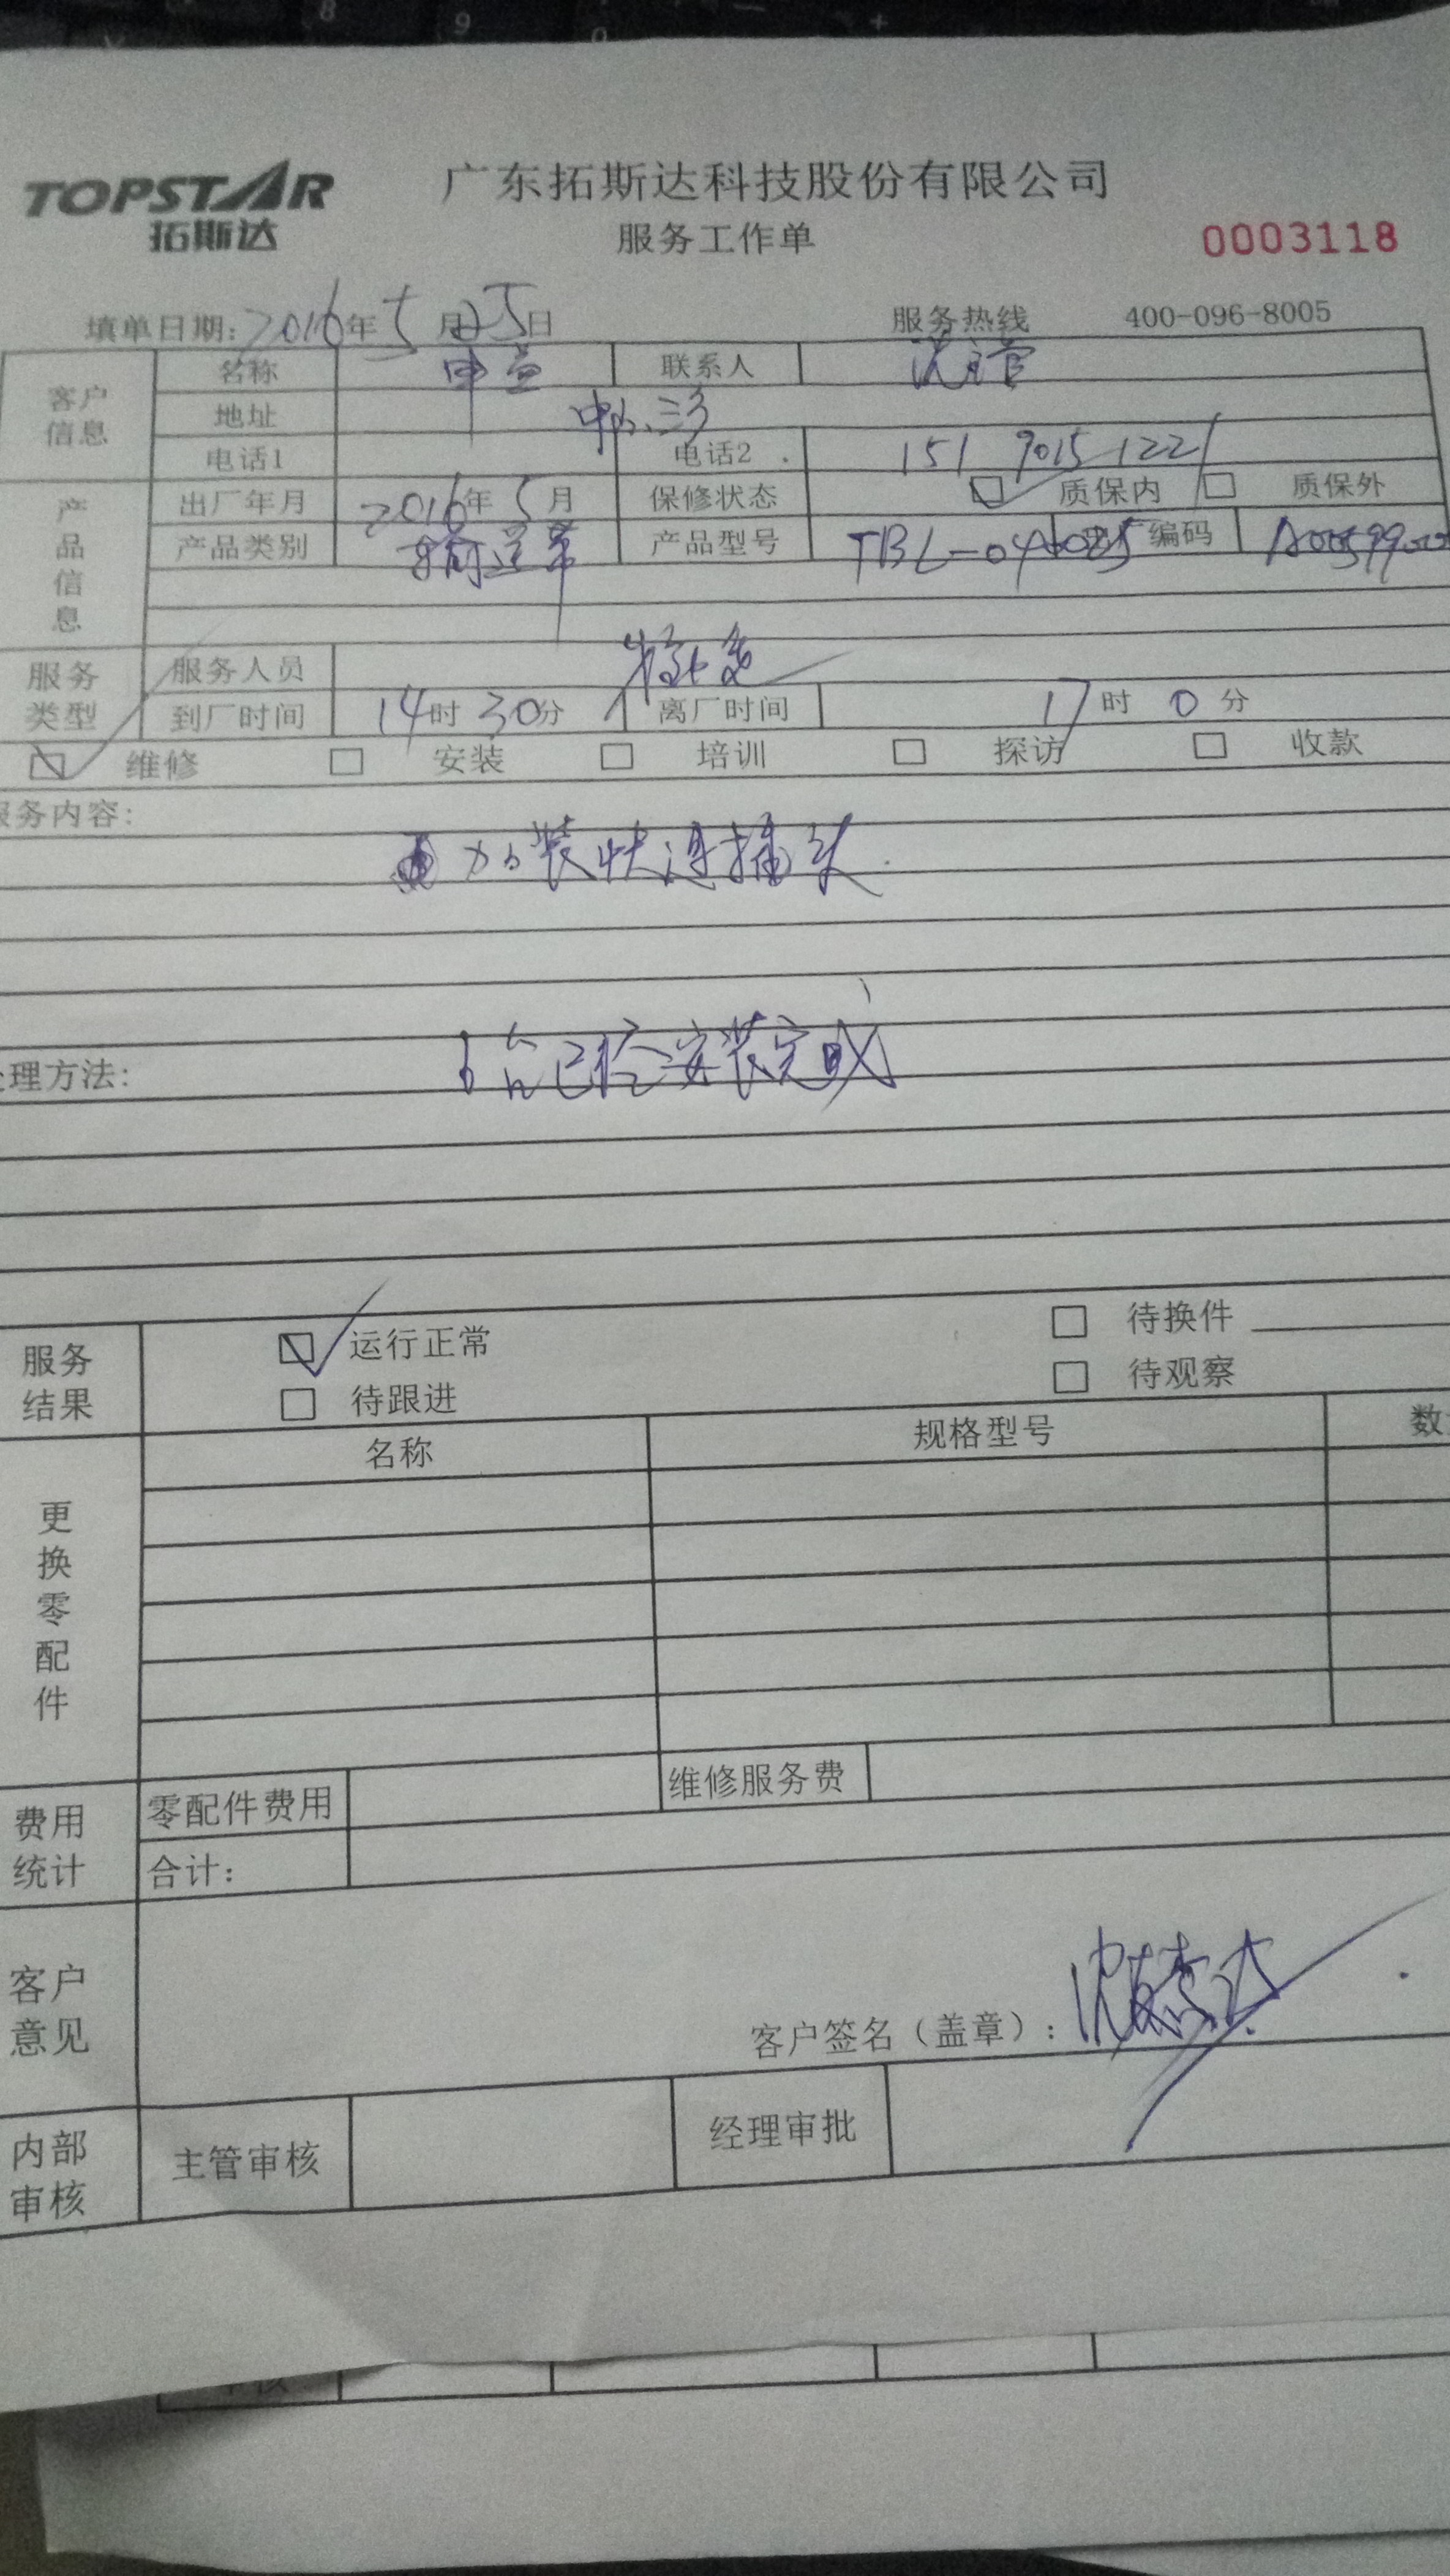 TOPSTAR
拓斯达
广东拓斯达科技股份有限公司
服务工作单
0003118
填单日期: 2016年5月25日
服务热线 400-096-8005
客户信息
名称 申宣 联系人 沈主管
地址 中山三乡
电话1 电话2 151 9015 1221
产品信息
出厂年月 2016年5月 保修状态 质保内 质保外
产品类别 输送带 产品型号 TBL-04 编码
服务类型
服务人员
到厂时间 14时30分 离厂时间 17时0分
维修 安装 培训 探访 收款
服务内容:
加装快速插头
处理方法:
6台已经安装完成
服务结果
运行正常 待换件
待跟进 待观察
更换零配件
名称 规格型号 数
费用统计
零配件费用 维修服务费
合计:
客户意见
客户签名(盖章):
内部审核
主管审核 经理审批